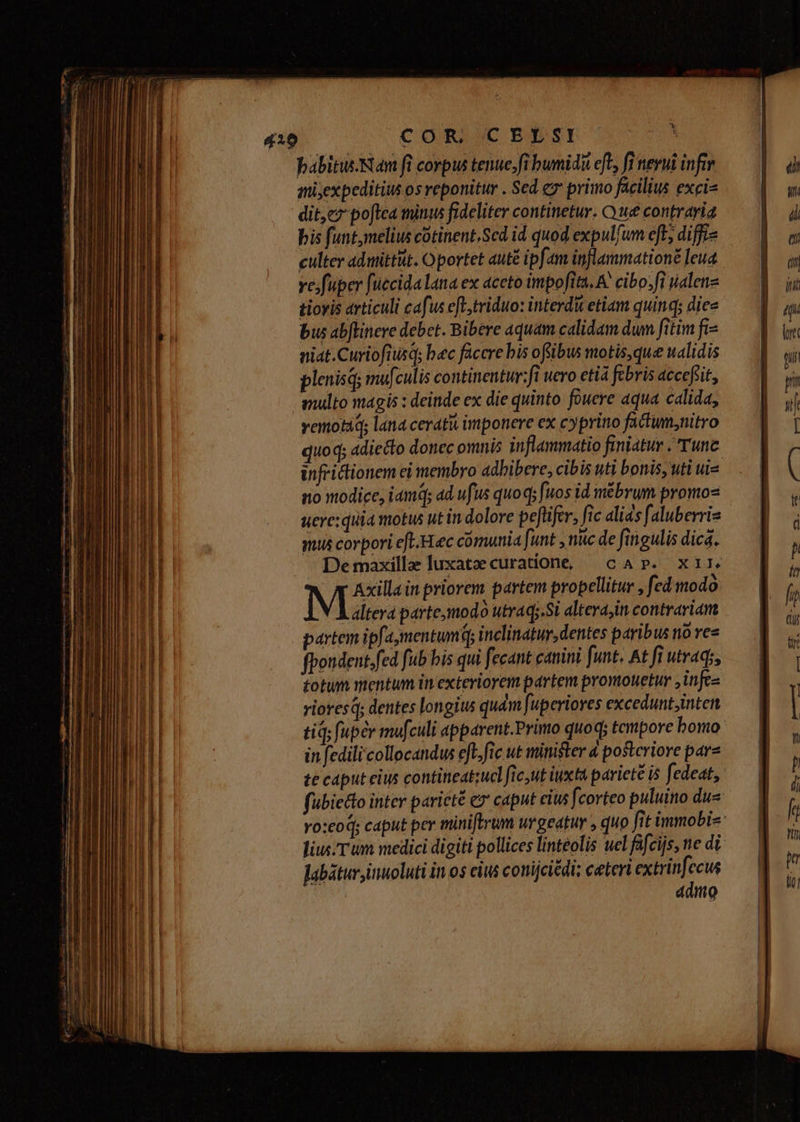 420 COR. CELSI
habitus. Nam si corpus tenue, si humidū est, si nerui infir
mi, expeditius os reponitur. Sed & primo facilius exci=
dit, & postea minus fideliter continetur. Quæ contraria
his sunt, melius cōtinent. Sed id quod expulsum est, diffi=
culter admittūt. Oportet autē ipsam inflammationē leua
re, super succida lana ex aceto imposita. A' cibo, si ualen=
tioris articuli casus est, triduo: interdū etiam quinq; die=
bus abstinere debet. Bibere aquam calidam dum sitim fi=
niat. Curiosiusq́; hæc facere his ossibus motis, quæ ualidis
plenisq́; musculis continentur: si uero etiā febris accessit,
multo magis: deinde ex die quinto fouere aqua calida,
remotaq́; lana ceratū imponere ex cyprino factum, nitro
quoq; adiecto donec omnis inflammatio finiatur. Tunc
infrictionem ei membro adhibere, cibis uti bonis, uti ui=
no modice, iamq́; ad usus quoq; suos id mēbrum promo=
uere: quia motus ut in dolore pestifer, sic aliàs saluberri=
mus corpori est. Hæc cōmunia sunt, nūc de singulis dicā.
De maxillæ luxatæ curatione, CAP. XII.
MAxilla in priorem partem propellitur, sed modò
altera parte, modò utraq;. Si altera, in contrariam
partem ipsa, mentumq́; inclinatur, dentes paribus nō re=
spondent, sed sub his qui secant canini sunt. At si utraq;,
totum mentum in exteriorem partem promouetur, infe=
rioresq́; dentes longius quàm superiores excedunt, inten
tiq́; supèr musculi apparent. Primo quoq; tempore homo
in sedili collocandus est, sic ut minister à posteriore par=
te caput eius contineat: uel sic, ut iuxta parietē is sedeat,
subiecto inter parietē & caput eius scorteo puluino du=
ro: eoq́; caput per ministrum urgeatur, quo sit immobi=
lius. Tum medici digiti pollices linteolis uel fascijs, ne di
labātur, inuoluti in os eius conijciēdi: cæteri extrinsecus
admo